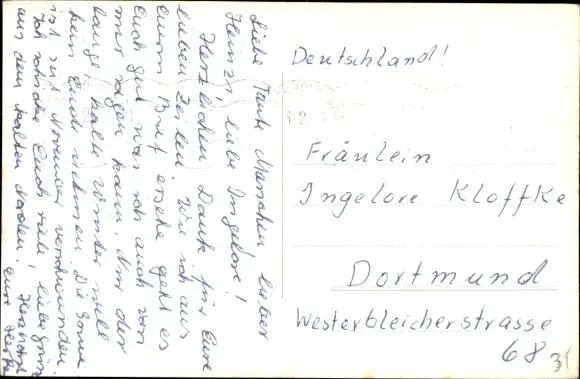 Liebe Tante Mienchen, lieber
Heinz, liebe Ingelore!
Herzlichen Dank für Eure
lieben Zeilen. Wie ich aus
Eurem Brief ersehe geht es
Euch gut was ich auch von
mir sagen kann. Nur der
lange, kalte Winter will
kein Ende nehmen. Die Sonne
ist seit November verschwunden.
Ich schicke Euch viele, liebe Grüße
aus dem kalten Norden.
Eure
Deutschland!
Fräulein
Ingelore Kloffke
Dortmund
Westerbleicherstrasse
68
31